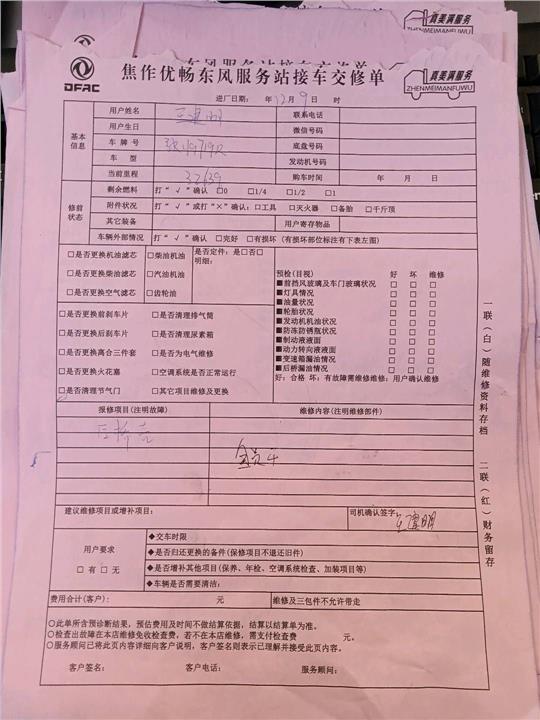 真美满服务
ZHENMEIMANFUWU
DFAC
焦作优畅东风服务站接车交修单
真美满服务
ZHENMEIMANFUWU
进厂日期： 年12月9日 时
基本信息
用户姓名 联系电话
用户生日 微信号码
车牌号 底盘号码
车型 发动机号码
当前里程 32639 购车时间 年 月 日
修前状态
剩余燃料 打“√”确认 □0 □1/4 □1/2 □1
附件状况 打“√”或打“×”确认：□工具 □灭火器 □备胎 □千斤顶
其它装备 用户寄存物品
车辆外部情况 打“√”确认 □完好 □有损坏（有损坏部位标注有下表左图）
□是否更换机油滤芯 □柴油机油 是否定件：是□否□
明细：
□是否更换柴油滤芯 □汽油机油
□是否更换空气滤芯 □齿轮油
预检(目视) 好 坏 维修
■前挡风玻璃及车门玻璃状况 □ □ □
■灯具情况 □ □ □
■油量状况 □ □ □
■轮胎状况 □ □ □
■发动机机油状况 □ □ □
■防冻防锈瓶状况 □ □ □
■制动液液面 □ □ □
■动力转向液液面 □ □ □
■变速箱漏油情况 □ □ □
■后桥漏油情况 □ □ □
好：合格 坏：有故障需维修维修：用户确认维修
□是否更换前刹车片 □是否清理排气筒
□是否更换后刹车片 □是否清理尿素箱
□是否更换离合三件套 □是否为电气维修
□是否更换火花塞 □空调系统是否正常运行
□是否清理节气门 □其它项目维修及更换
报修项目(注明故障) 维修内容(注明维修部件)
建议维修项目或增补项目： 司机确认签字：
用户要求
□有 □无
◆交车时限
◆是否归还更换的备件(保修项目不退还旧件)
◆是否增补其他项目(保养、年检、空调系统检查、加装项目等)
◆车辆是否需要清洁：
费用合计(客户)： 元 维修及三包件不允许带走
○此单所含预诊断结果，预估费用及时间不做结算依据，结算以结算单为准。
○检查出故障在本店维修免收检查费，若不在本店维修，需支付检查费 元。
○服务顾问已将此页内容详细向客户说明，客户签名则表示已理解并接受此页内容。
客户签名： 客户电话： 服务顾问：
一联（白）随维修资料存档
二联（红）财务留存